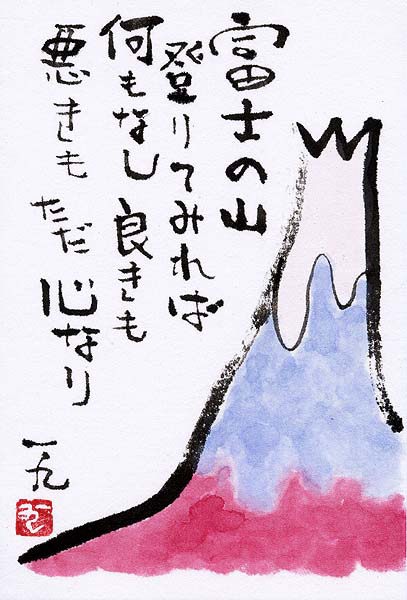 富士の山
登りてみれば
何もなし 良きも
悪きも ただ 心なり
一九